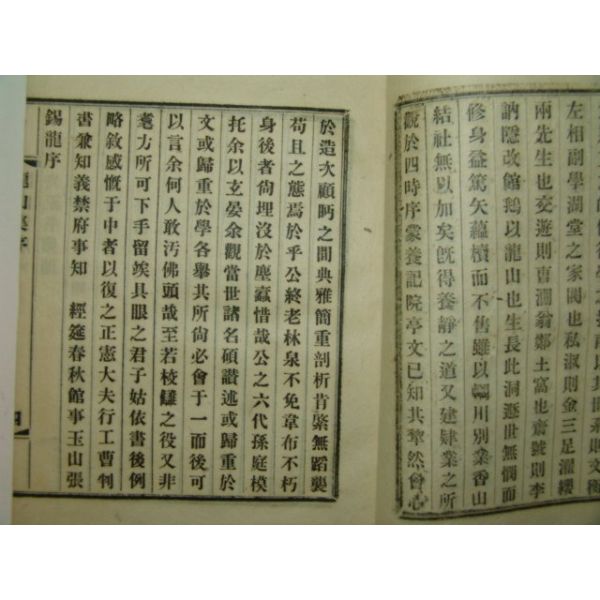 左相副學湖堂之家閥也私淑則金三足濯纓
兩先生也交遊則曺澗翁鄭土富也齋號則李
訥隱改館鵝以龍山也生長此洞遯世無憫而
修身益篤矣蘊櫝而不售雖以輞川別業香山
結社無以加矣旣得養靜之道又建肄業之所
觀於四時序蒙養記院亭文已知其犂然會心
於造次顧眄之間典雅簡重剖析肯綮無蹈襲
苟且之態焉於乎公終老林泉不免韋布不朽
身後者尙埋沒於塵蠹惜哉公之六代孫庭模
托余以玄晏余觀當世諸名碩讚述或歸重於
文或歸重於學各擧其所尙必會于一而後可
以言余何人敢汚佛頭哉至若校讎之役又非
耄方所可下手留竢具眼之君子姑依書後例
略敘感慨于中者以復之正憲大夫行工曹判
書兼知義禁府事知　經筵春秋館事玉山張
錫龍序